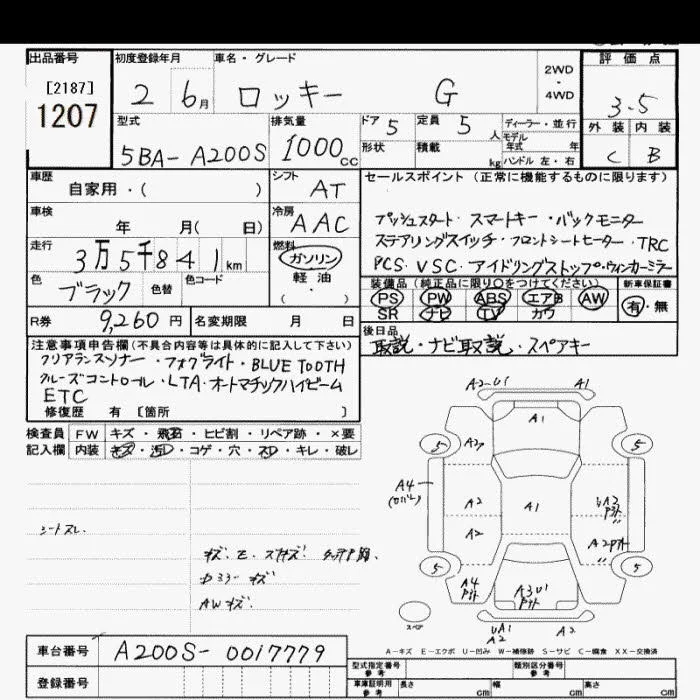 出品番号 初度登録年月 車名・グレード 評価点
[2187]
1207
2 6月 ロッキー G 2WD・4WD 3.5
外装 内装
C B
型式 排気量 ドア 定員 ディーラー・並行
5BA-A200S 1000cc 5 5人 モデル年式 年
形状 積載 kg ハンドル 左・右
車歴 シフト セールスポイント (正常に機能するものに限ります)
自家用・( ) AT
車検 冷房 プッシュスタート・スマートキー・バックモニター
年 月( 日) AAC ステアリングスイッチ・フロントシートヒーター・TRC
走行 燃料 PCS・VSC・アイドリングストップ・ウィンカーミラー
3万5千841km ガソリン
軽油
( )
色 色替 色コード
ブラック
装備品 (純正品に限り○をつけてください) 新車保証書
PS PW ABS エアB AW 有・無
SR ナビ TV カワ
R券 9,260円 名変期限 月 日
後日品
取説・ナビ取説・スペアキー
注意事項申告欄 (不具合内容等は具体的に記入して下さい)
クリアランスソナー・フォグライト・BLUE TOOTH
クルーズコントロール・LTA・オートマチックハイビーム
ETC
修復歴 有 [箇所 ]
検査員 FW キズ・飛石・ヒビ割・リペア跡・×要
記入欄 内装 キズ・汚レ・コゲ・穴・スレ・キレ・破レ
シートスレ
AWキズ
A2・U1 A1
A1
5 A7 5
A4
A2 A1 A2
A2 A2
5 5
A4 A3U1
スペア
UA1 A2
A2
A-キズ E-エクボ U-凹み W-補修跡 S-サビ C-腐食 XX-交換済
車台番号 A200S-0017779
登録番号
型式指定番号 参考 類別区分番号 参考
車庫証明用 参考 長さ cm 幅 cm 高さ cm